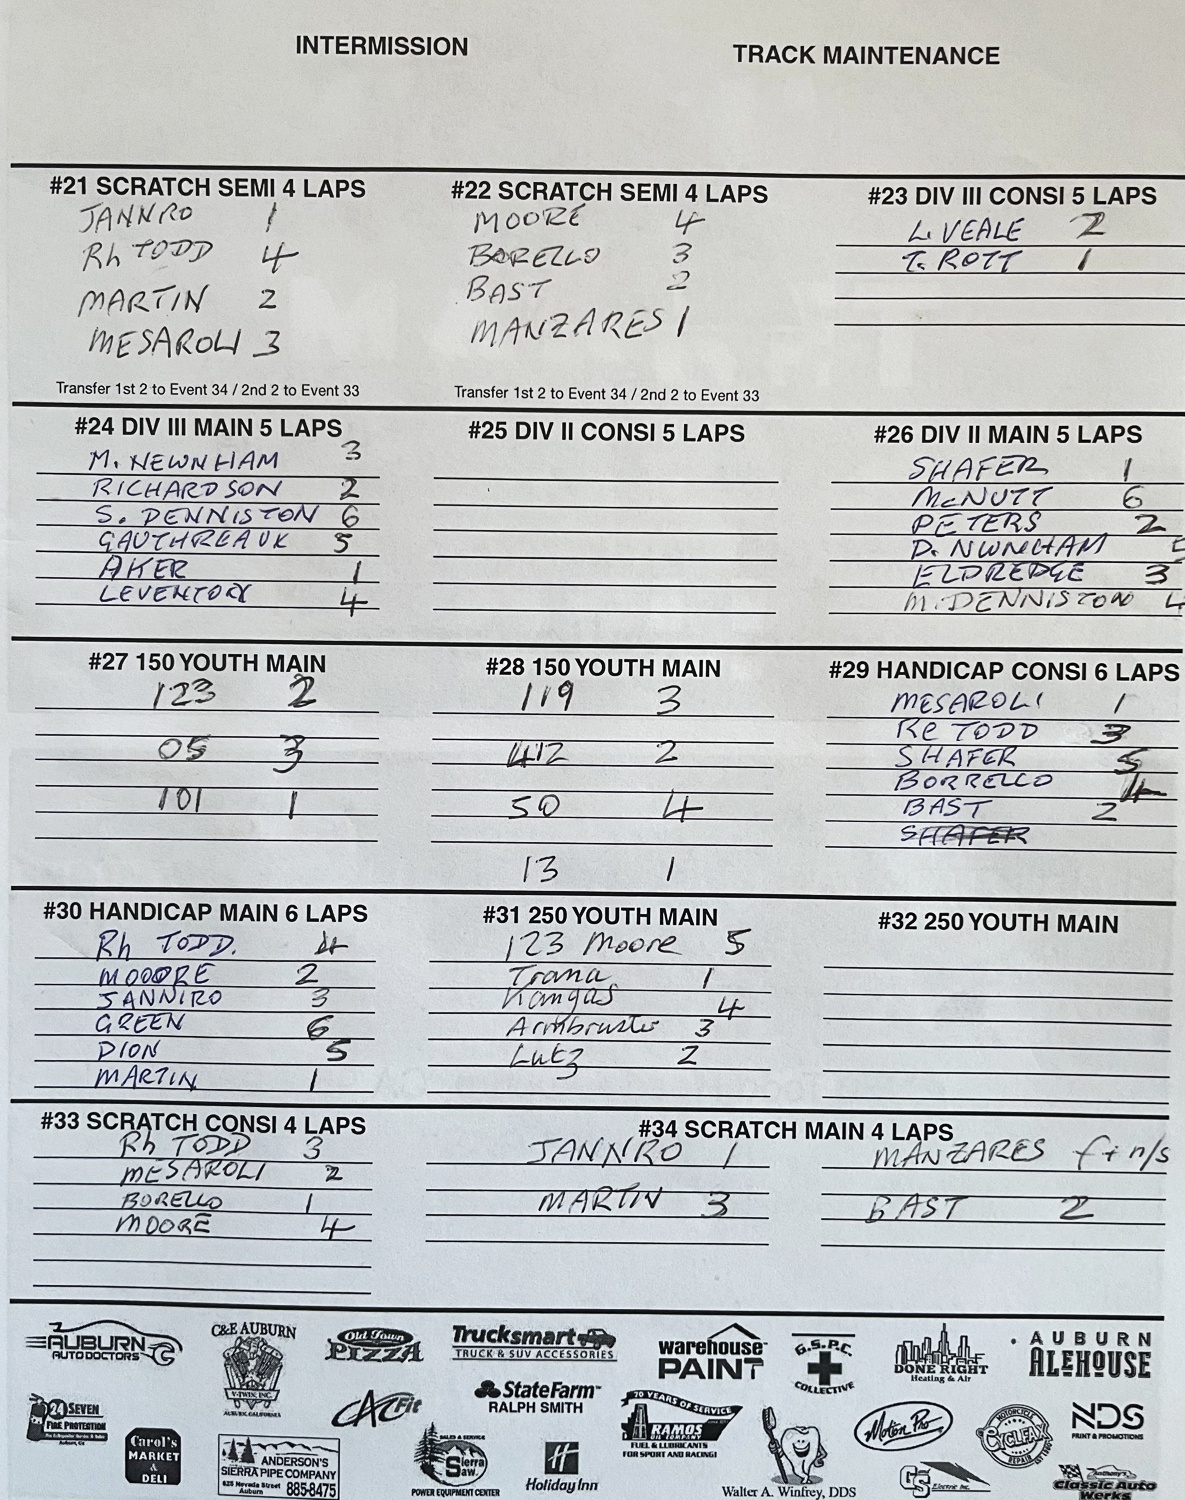 INTERMISSION
TRACK MAINTENANCE
#21 SCRATCH SEMI 4 LAPS
JANNRO 1
Rh TODD 4
MARTIN 2
MESAROLI 3
Transfer 1st 2 to Event 34 / 2nd 2 to Event 33
#22 SCRATCH SEMI 4 LAPS
MOORE 4
BORELLO 3
BAST 2
MANZARES 1
Transfer 1st 2 to Event 34 / 2nd 2 to Event 33
#23 DIV III CONSI 5 LAPS
L. VEALE 2
T. ROTT 1
#24 DIV III MAIN 5 LAPS
M. NEWNHAM 3
RICHARDSON 2
S. DENNISTON 6
GAUTHREAUX 5
AKER 1
LEVENTON 4
#25 DIV II CONSI 5 LAPS
#26 DIV II MAIN 5 LAPS
SHAFER 1
McNUTT 6
PETERS 2
D. NWNHAM 5
ELDREDGE 3
M. DENNISTON 4
#27 150 YOUTH MAIN
123 2
05 3
101 1
#28 150 YOUTH MAIN
119 3
412 2
50 4
13 1
#29 HANDICAP CONSI 6 LAPS
MESAROLI 1
Re TODD 3
SHAFER 5
BORRELLO 4
BAST 2
SHAFER
#30 HANDICAP MAIN 6 LAPS
Rh TODD. 4
MOOORE 2
JANNIRO 3
GREEN 6
DION 5
MARTIN 1
#31 250 YOUTH MAIN
123 Moore 5
Trana 1
Kangas 4
Armbruster 3
Lutz 2
#32 250 YOUTH MAIN
#33 SCRATCH CONSI 4 LAPS
Rh TODD 3
MESAROLI 2
BORELLO 1
MOORE 4
#34 SCRATCH MAIN 4 LAPS
JANNRO 1
MARTIN 3
MANZARES f i n/s
BAST 2
AUBURN
AUTO DOCTORS
C&E AUBURN
V-TWIN, INC.
AUBURN, CALIFORNIA
Old Town
PIZZA
Trucksmart
TRUCK & SUV ACCESSORIES
warehouse
PAINT
G.S.P.C.
COLLECTIVE
DONE RIGHT
Heating & Air
AUBURN
ALEHOUSE
24 SEVEN
FIRE PROTECTION
Carol's
MARKET
&
DELI
ANDERSON'S
SIERRA PIPE COMPANY
625 Nevada Street
Auburn 885-8475
CAL Fit
StateFarm™
RALPH SMITH
SALES & SERVICE
Sierra
Saw.
POWER EQUIPMENT CENTER
Holiday Inn
70 YEARS OF SERVICE
RAMOS
OIL COMPANY
FUEL & LUBRICANTS
FOR SPORT AND RACING!
Walter A. Winfrey, DDS
Motion Pro
GS
Electric Inc.
MOTORCYCLE
CYCLEFAX
REPAIR
NDS
PRINT & PROMOTIONS
Anthony's
Classic Auto
Works